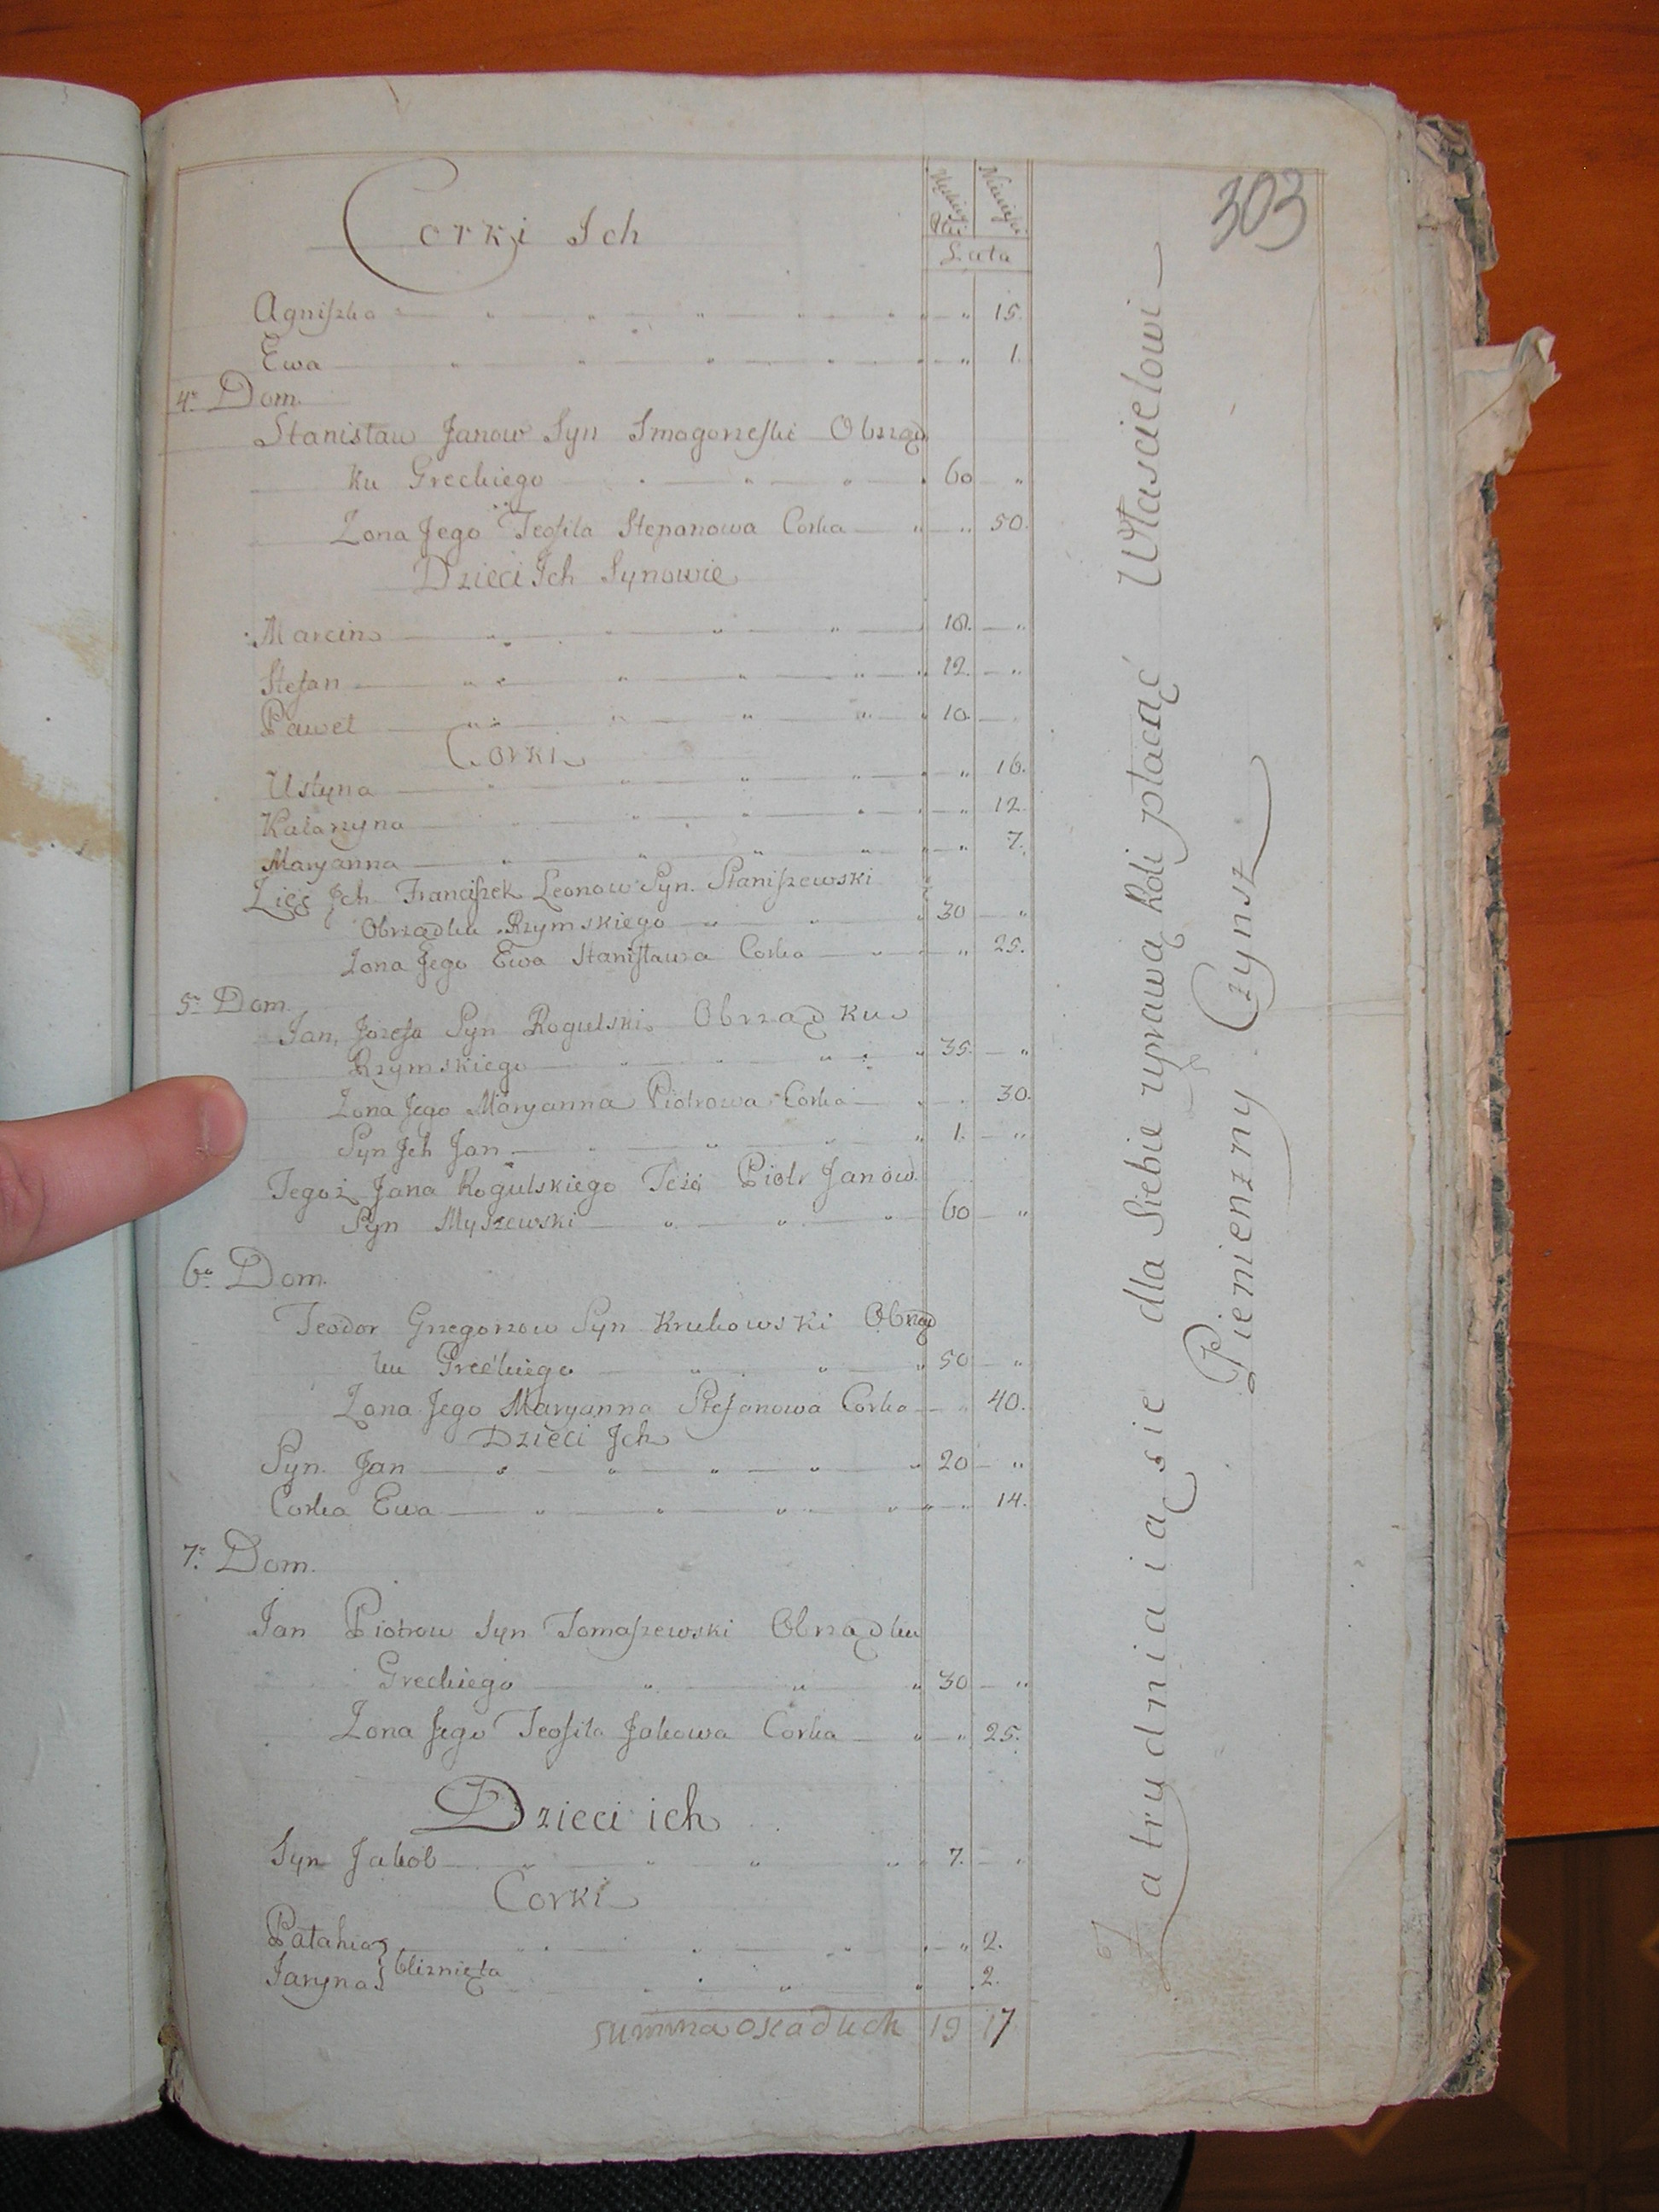 303
Męskiey Niewieś.
Płci
Lata
Corki Ich
Agniszka 15.
Ewa 1.
4º Dom.
Stanisław Janow Syn Smogorzeski Obrząd
ku Greckiego 60
Zona Jego Teofila Stepanowa Corka 50.
Dzieci Ich Synowie
Marcin 18.
Stefan 12.
Paweł 10.
Corki
Ustyna 16.
Katarzyna 12.
Maryanna 7.
Zięć Jch Franciszek Leonow Syn Staniszewski
Obrządku Rzymskiego 30
Zona Jego Ewa Stanisława Corka 25.
5º Dom.
Jan, Jozefa Syn Rogulski Obrządku
Rzymskiego 35.
Zona Jego Maryanna Piotrowa Corka 30.
Syn Jch Jan 1.
Tegoż Jana Rogulskiego Teść Piotr Janow
Syn Myszewski 60
6º Dom.
Teodor Grzegorzow Syn Krukowski Obrząd
ku Greckiego 50
Zona Jego Maryanna Stefanowa Corka 40.
Dzieci Jch
Syn Jan 20
Corka Ewa 14.
7º Dom.
Jan Piotrow Syn Tomaszewski Obrządku
Greckiego 30
Zona Jego Teofila Jakowa Corka 25.
Dzieci ich
Syn Jakob 7.
Corki
Patahia 2.
Jaryna bliznięta 2.
summa osiadłych 19 17
Zatrudniaią sie dla Siebie uprawą Roli płacąć Własćielowi
Pienienzny Czynsz